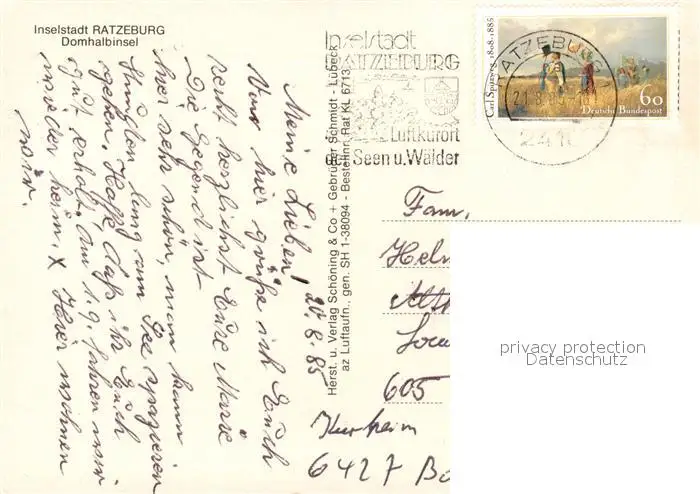 Inselstadt RATZEBURG
Domhalbinsel
Inselstadt
RATZEBURG
Luftkurort
der Seen u. Wälder
RATZEBURG
21.8.
2418
Carl Spitzweg 1808-1885
60
Deutsche Bundespost
Herst. u. Verlag Schöning & Co + Gebrüder Schmidt - Lübeck
az Luftaufn., gen. SH 1-38094 - Bestellnr. Rat KL 6713
20.8.85
Meine Lieben!
Von hier grüße ich Euch
recht herzlichst Eure Marie
Die Gegend ist
hier sehr schön, man kann
Stunden lang am See spazieren
gehen. Hoffe daß ihr Euch
gut erholt, am 1.9. fahren wir
wieder heim. X Hier wohnen
wir.
Fam.
Helm
605
Kurheim
6427 Ba
privacy protection
Datenschutz